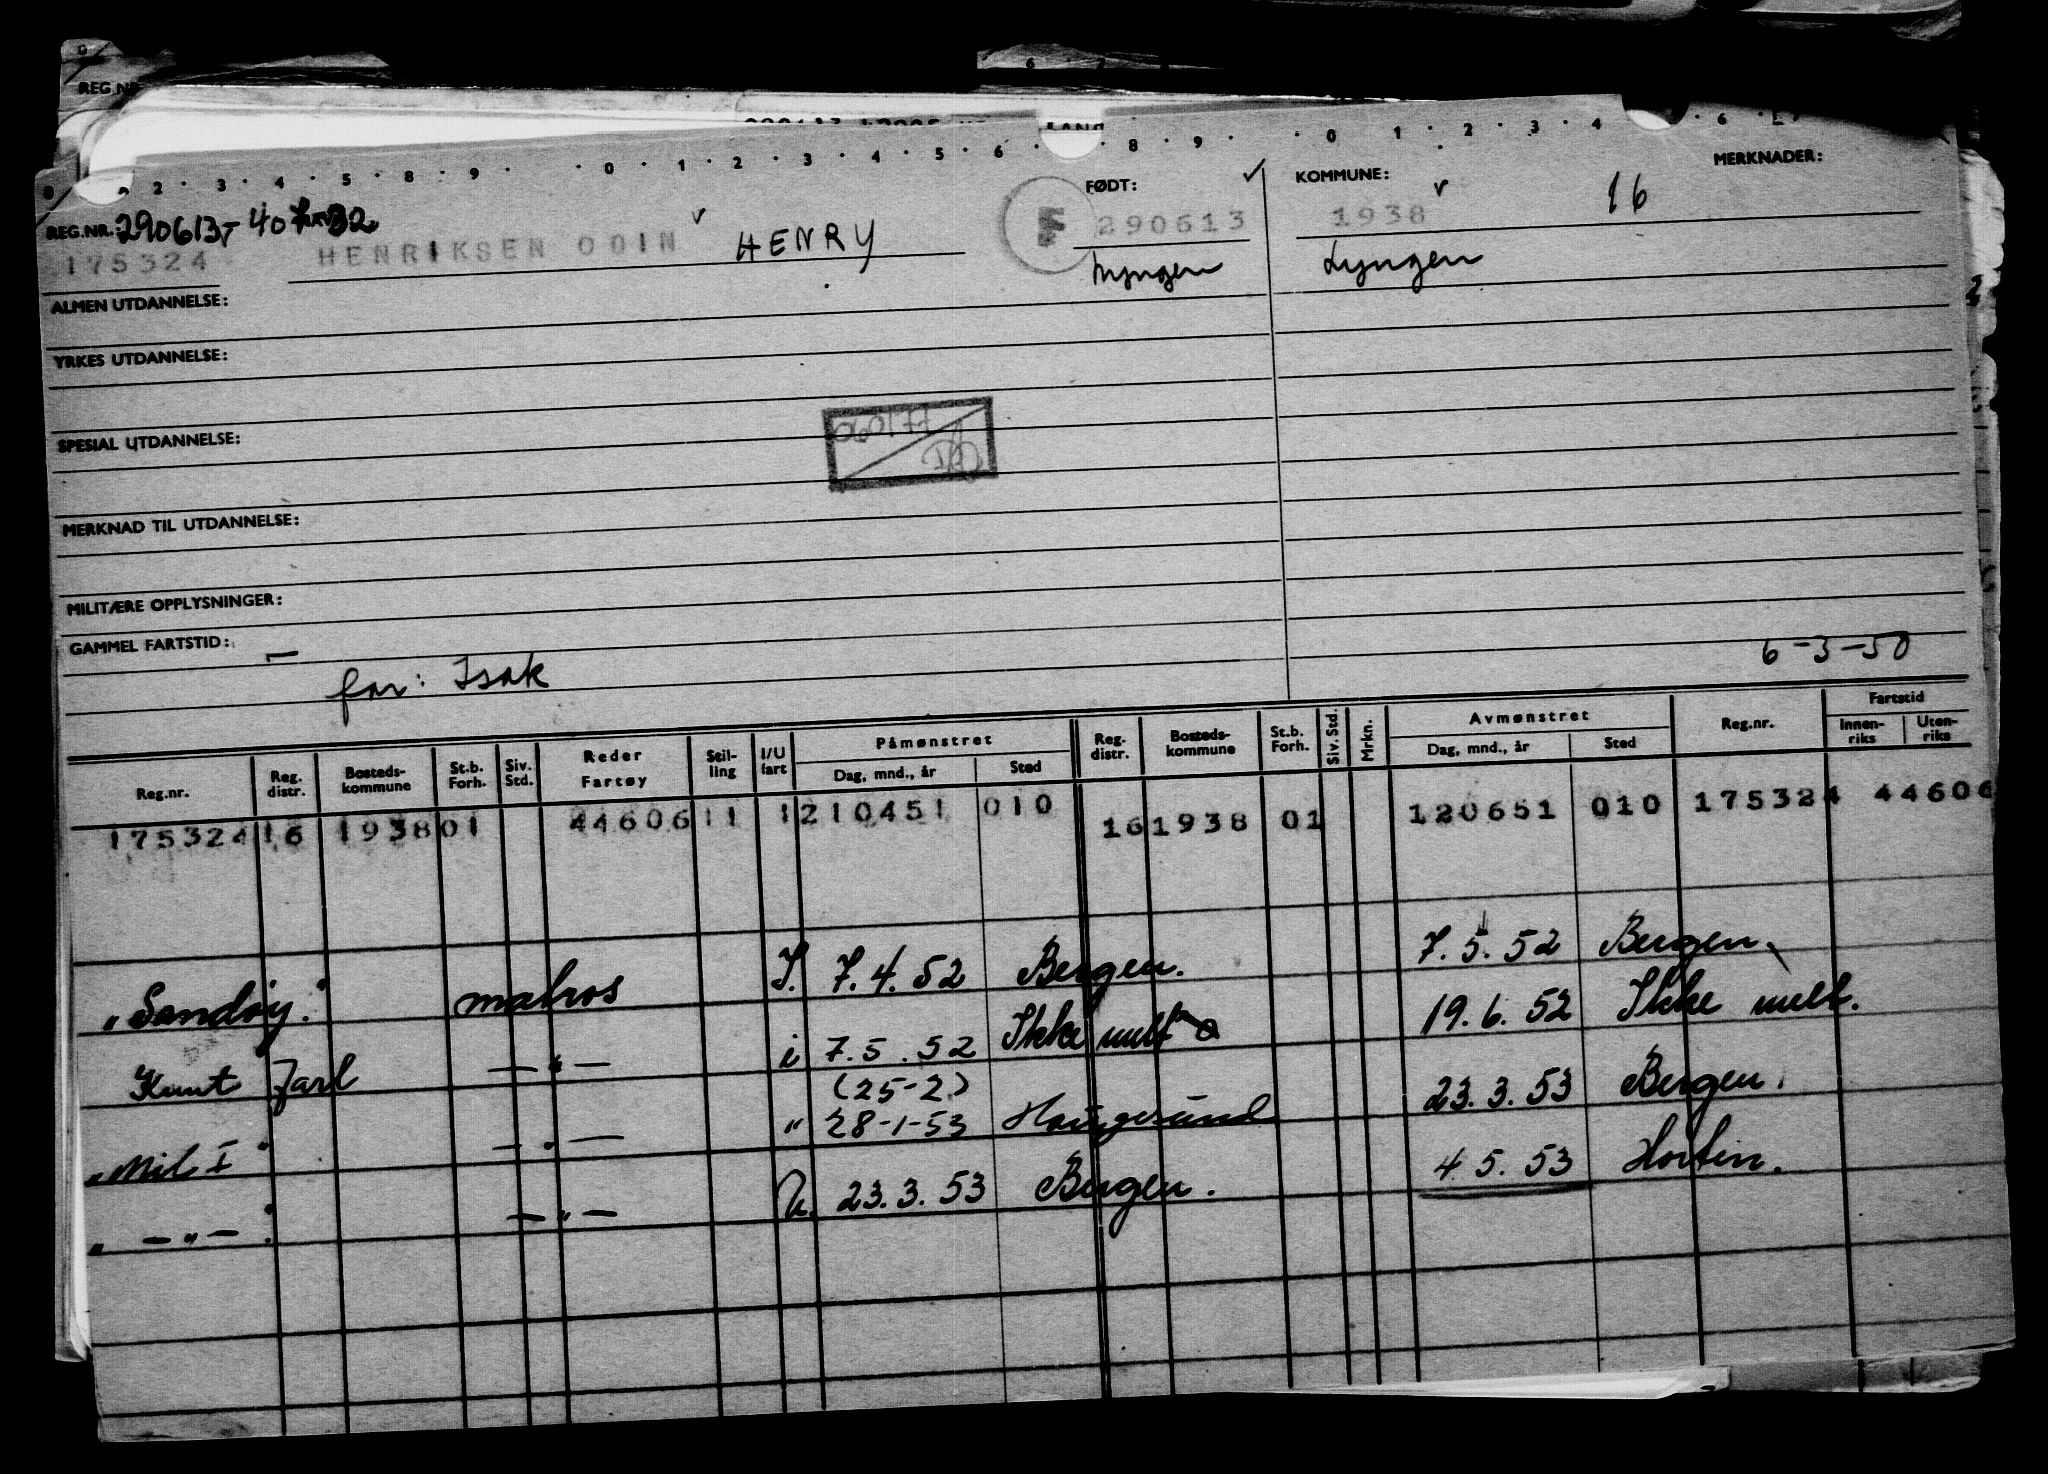 REG.NR
0 1 2 3 4 5 6 8 9 0 1 2 3 4 6
2 3 4 5 8 9
REG.NR. 290613 - 40 32
175324
HENRIKSEN ODIN HENRY
F
FØDT:
290613
Lyngen
KOMMUNE:
1938
16
Lyngen
MERKNADER:
ALMEN UTDANNELSE:
YRKES UTDANNELSE:
SPESIAL UTDANNELSE:
060177
MERKNAD TIL UTDANNELSE:
MILITÆRE OPPLYSNINGER:
GAMMEL FARTSTID: —
far: Isak
6-3-50
Reg.nr. Reg. distr. Bosteds-kommune St.b. Forh. Siv. Std. Reder Fartøy Stil-ling I/U fart Påmønstret Dag, mnd., år Sted Reg. distr. Bosteds-kommune St.b. Forh. Siv. Std. Mrkn. Avmønstret Dag, mnd., år Sted Reg.nr. Fartstid Innen-riks Uten-riks
175324 16 1938 01 44606 11 1 210451 010 16 1938 01 120651 010 175324 44606
"Sandøy." matros I. 7.4.52 Bergen. 7.5.52 Bergen.
Knut Jarl — " — i 7.5.52 Ikke melt 19.6.52 Ikke melt.
(25-2)
"Mil I" — " — " 28-1-53 Haugesund 23.3.53 Bergen.
" — " — " — " — U. 23.3.53 Bergen. 4.5.53 Horten.